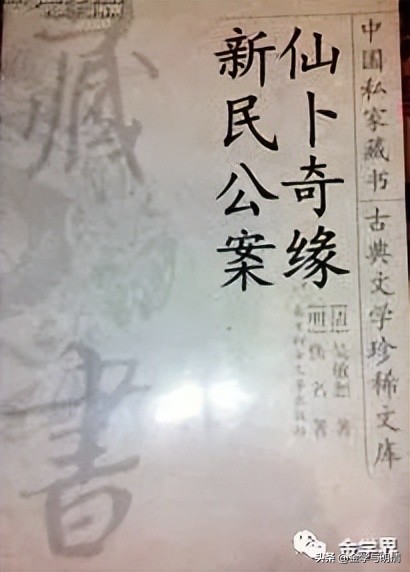 中国私家藏书 古典文学珍稀文库
仙卜奇缘
新民公案
[清]吴毓恕 著
[明]佚名 著
藏書
金学界
头条 @金学与明清